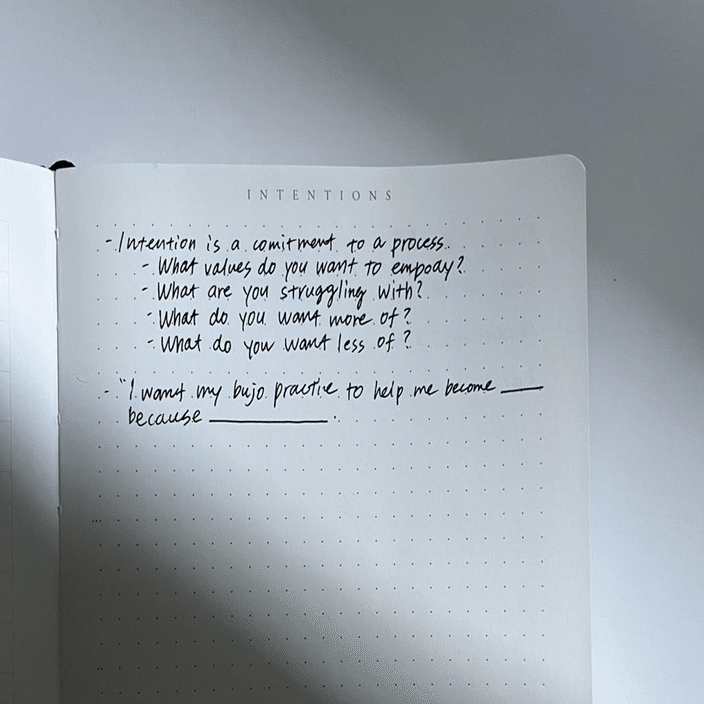 INTENTIONS
- Intention is a comitment to a process.
- What values do you want to empody?
- What are you struggling with?
- What do you want more of?
- What do you want less of?
- "I want my bujo practie to help me become ____
because ________.